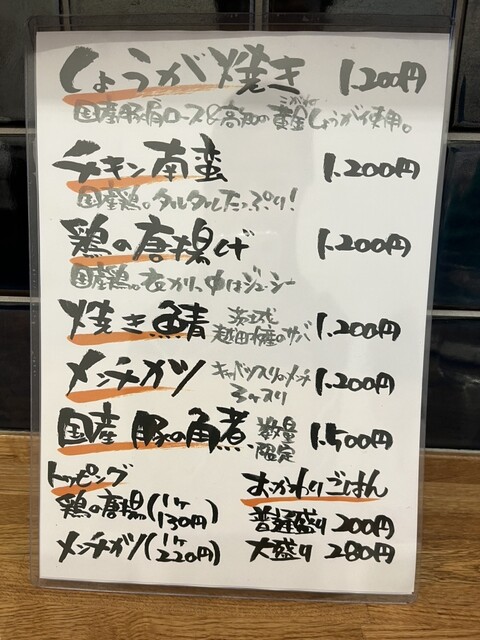 しょうが焼き 1.200円
国産豚肩ロース&高知の黄金しょうが使用。
こがね
チキン南蛮 1.200円
国産鶏。タルタルたっぷり!
鶏の唐揚げ 1.200円
国産鶏。衣カリ、中はジューシー
焼き鯖 1.200円
越田水産のサバ
メンチカツ 1.200円
キャベツ入りのメンチ
3ヶ入り
国産豚の角煮 数量限定 1.500円
トッピング
鶏の唐揚(1ヶ130円)
メンチカツ(1ヶ220円)
おかわりごはん
普通盛り 200円
大盛り 280円